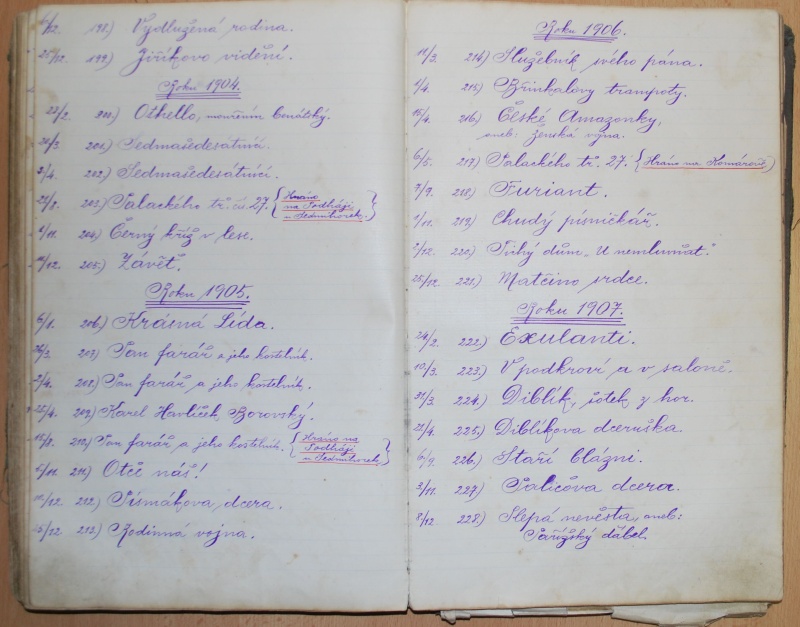 198.) Vydlužená rodina.
25/12. 199.) Jiříkovo vidění.
Roku 1904.
200.) Othello, mouřenín benátský.
201.) Sedmašedesátníci.
2/4. 202.) Sedmašedesátníci.
203.) Palackého tř. čís. 27. {Hráno
na Podháji
u Sedmihorek.}
1/11. 204.) Černý kříž v lese.
205.) Závěť.
Roku 1905.
6/1. 206.) Krásná Lída.
207.) Pan farář a jeho kostelník.
208.) Pan farář a jeho kostelník.
25/4. 209.) Karel Havlíček Borovský.
210.) Pan farář a jeho kostelník. {Hráno na
Podháji
u Sedmihorek.}
211.) Otče náš!
212.) Písmákova dcera.
213.) Rodinná vojna.
Roku 1906.
214.) Služebník svého pána.
1/4. 215.) Břinkalovy trampoty.
15/4. 216.) České Amazonky,
aneb: ženská vojna.
6/5. 217.) Palackého tř. 27. {Hráno na Komárově}
218.) Furiant.
1/11. 219.) Chudý písničkář.
2/12. 220.) Tichý dům „U nemluvňat."
25/12. 221.) Matčino srdce.
Roku 1907.
24/2. 222.) Exulanti.
10/3. 223.) V podkroví a v saloně.
31/3. 224.) Diblík, šotek z hor.
21/4. 225.) Diblíkova dceruška.
226.) Staří blázni.
3/11. 227.) Paličova dcera.
8/12. 228.) Slepá nevěsta, aneb:
Pařížský ďábel.